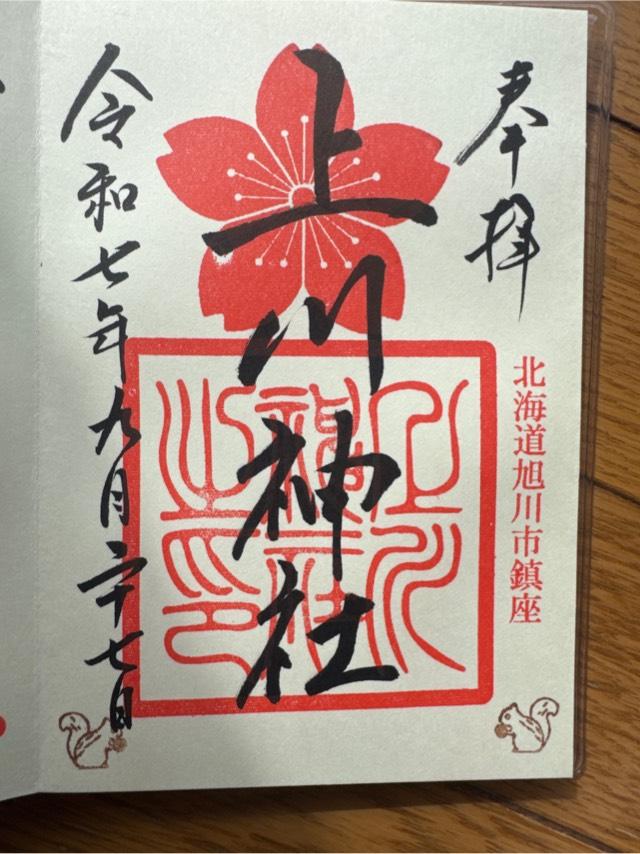 奉拝
北海道旭川市鎮座
上川神社
上川神社之印
令和七年九月二十七日